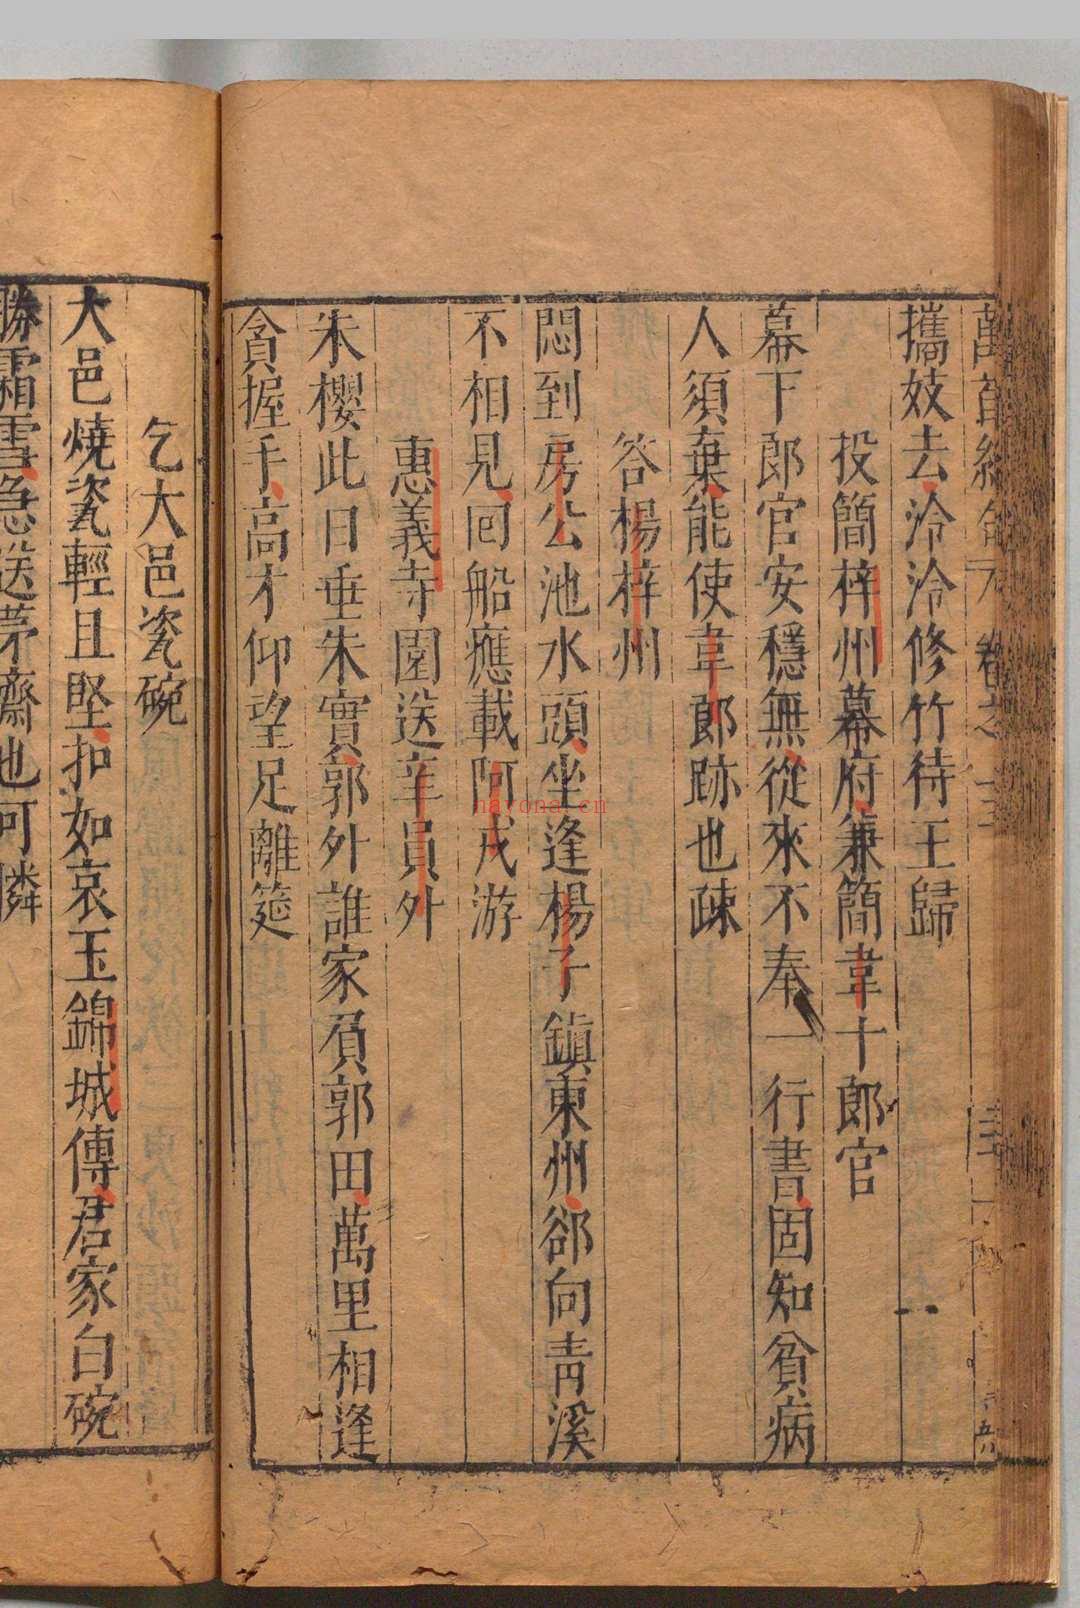 萬首絶句 卷之
攜妓去泠泠修竹待王歸
投簡梓州幕府兼簡韋十郎官
幕下郎官安穩無從來不奉一行書固知貧病
人須棄能使韋郎跡也疎
答楊梓州
悶到房公池水頭坐逢楊子鎮東州郤向青溪
不相見回船應載阿戎游
惠義寺園送辛員外
朱櫻此日垂朱實郭外誰家負郭田萬里相逢
貪握手高才仰望足離筵
乞大邑瓷碗
大邑燒瓷輕且堅扣如哀玉錦城傳君家白碗
勝霜雪急送茅齋也可憐
nayona.cn